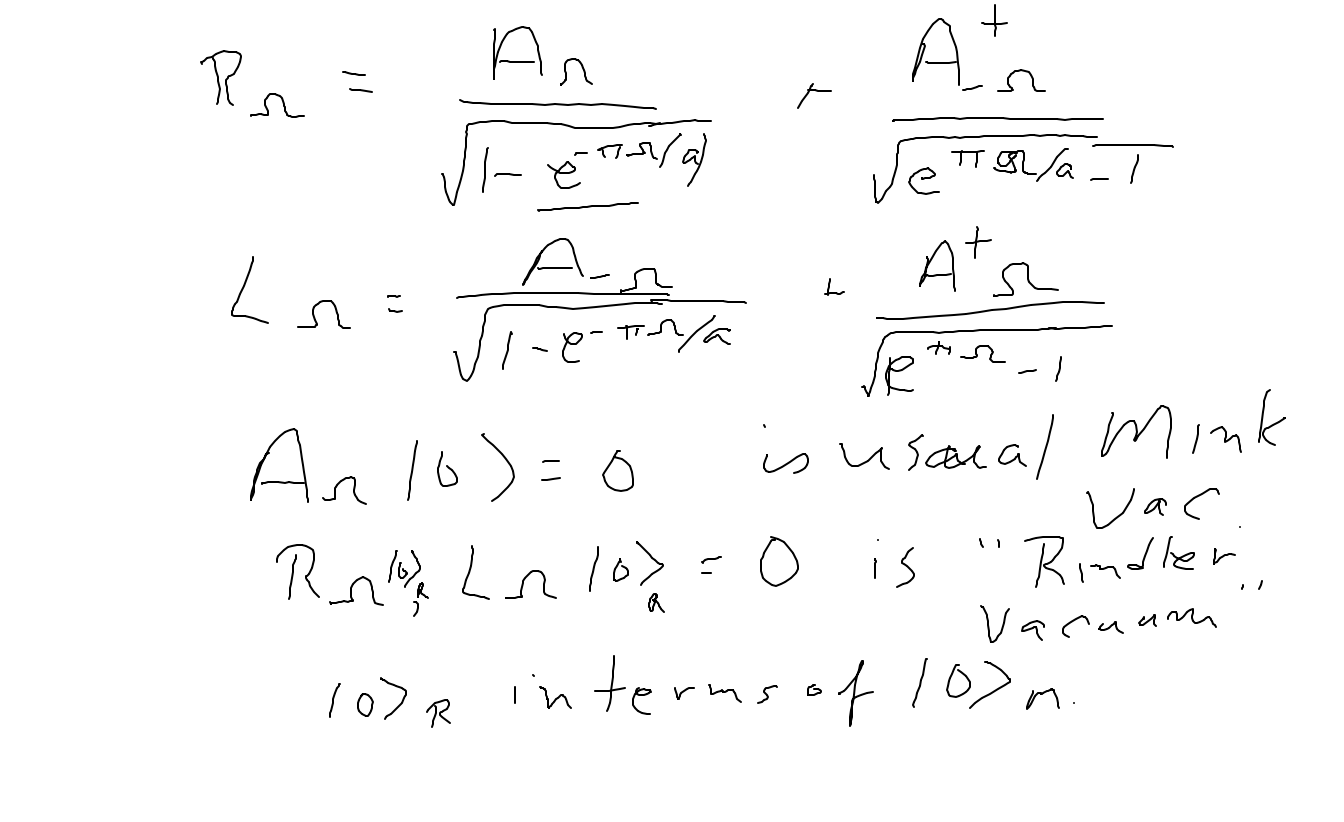 R_Ω = A_Ω / √(1 - e^{-πΩ/a}) + A^+_{-Ω} / √(e^{πΩ/a} - 1)
L_Ω = A_{-Ω} / √(1 - e^{-πΩ/a}) + A^+_Ω / √(e^{πΩ} - 1)
A_Ω |0⟩ = 0 is usual Mink
Vac.
R_Ω |0⟩_R, L_Ω |0⟩_R = 0 is "Rindler
Vacuum"
|0⟩_R in terms of |0⟩_M.